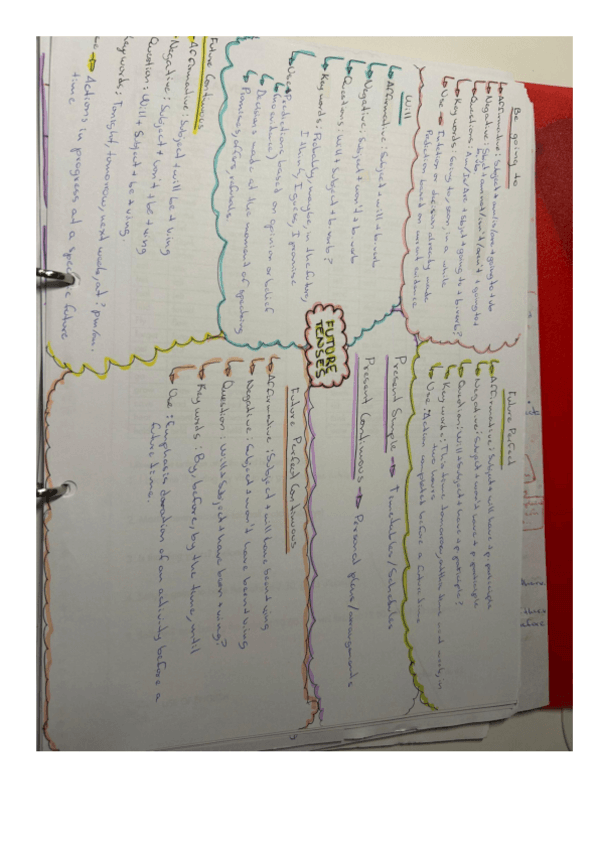 FUTURE
TENSES
Be going to
Affirmative: Subject + am/is/are + going to + do
Negative: Subject + am not/isn't/aren't + going to +
Questions: Am/Is/Are + subject + going to + b.verb?
Key words: Going to, soon, in a while
Use → Intention on the already made
Prediction based on current evidence
Will
Affirmative: Subject + will + b.verb
Negative: Subject + won't + b.verb
Questions: Will + Subject + b.verb?
Key words: Probably, maybe, in the future,
I think, I guess, I promise
Use → Predictions based on opinion or belief
(no evidence)
Decisions made at the moment of speaking
Promises, offers, refusals
Future Continuous
Affirmative: Subject + will be + ving
Negative: Subject + won't + be + ving
Question: Will + Subject + be + ving.
key words: Tonight, tomorrow, next week, at ? pm/am.
→ Actions in progress at a specific future
time
Future Perfect
Affirmative: Subject + will have + p. participle
Negative: Subject + won't have + p. participle
Question: Will + Subject + have + p. participle?
Key words: This time tomorrow, at this time next week, in
two hours
Use: Action completed before a future time
Present Simple → Timetables/Schedules
Present Continuous → Personal plans/arrangements
Future Perfect Continuous
Affirmative: Subject + will have been + ving
Negative: Subject + won't have been + ving
Question: Will + Subject + have been + ving?
Key words: By, before, by the time, until
Use: Emphasis duration of an activity before a
future time.